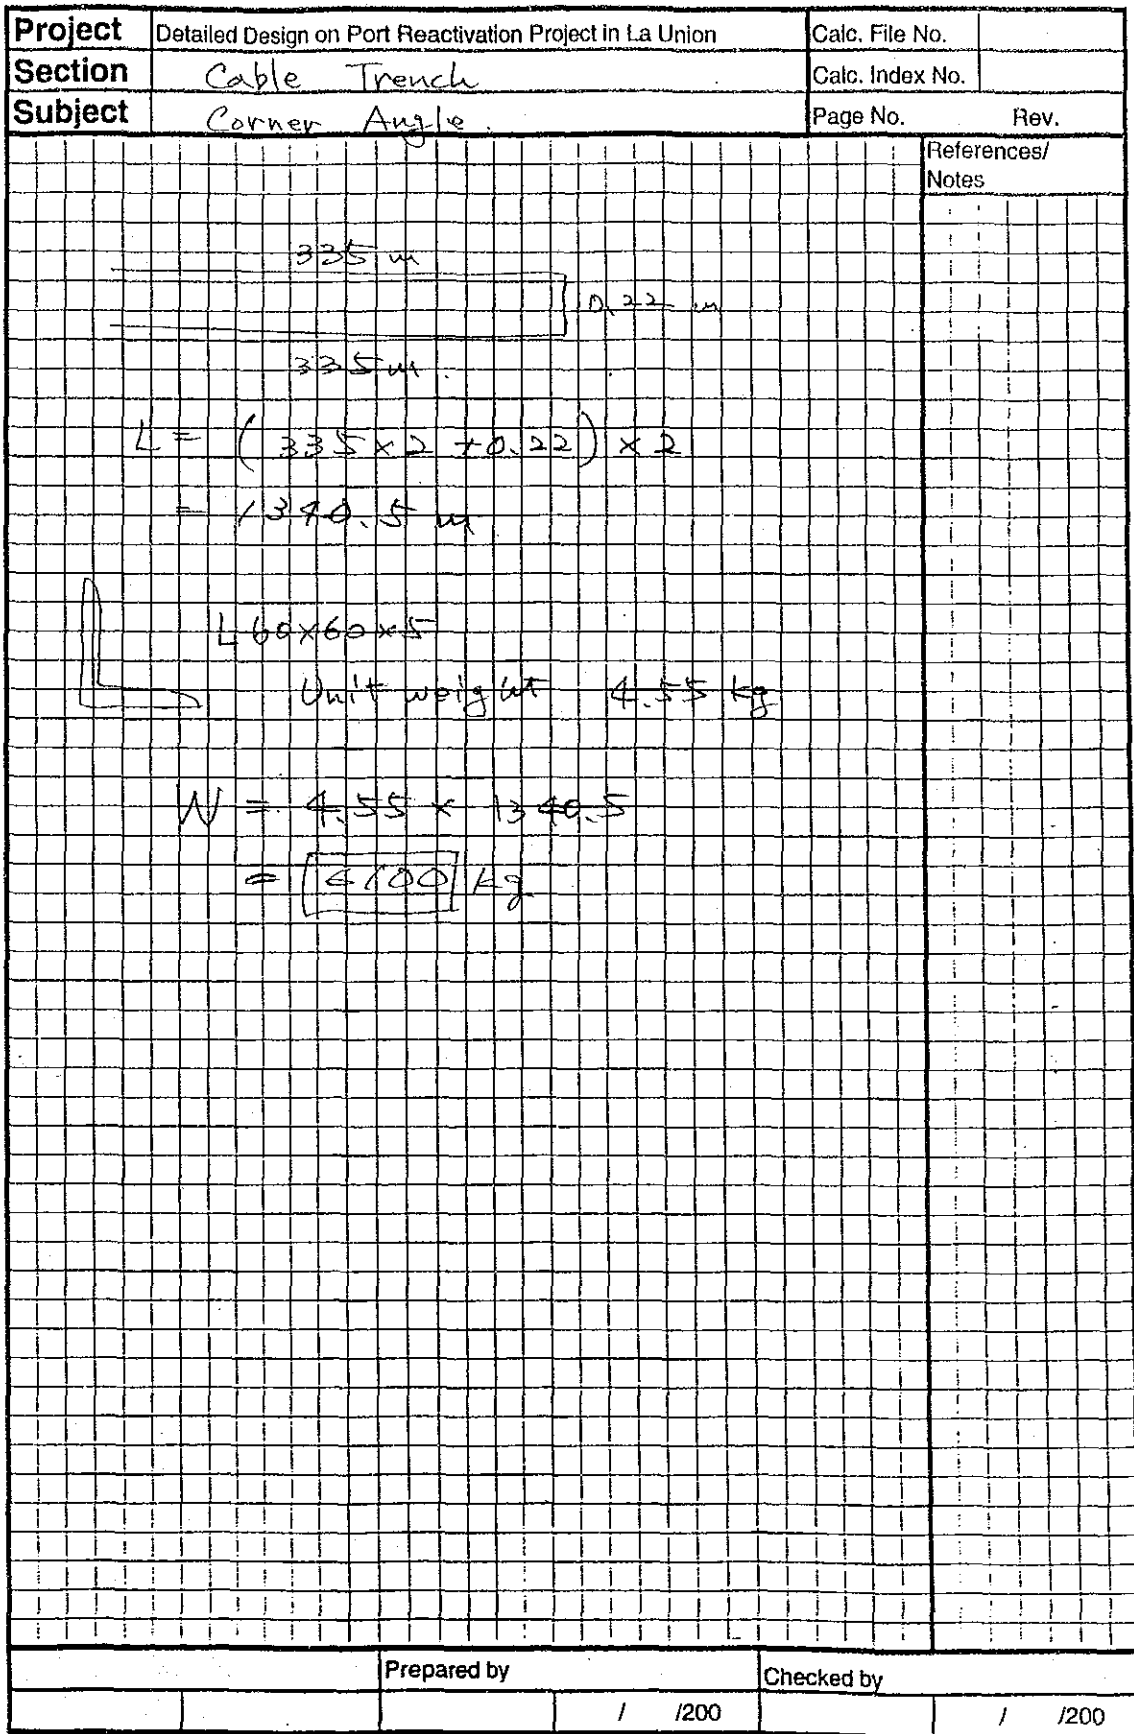 Project Detailed Design on Port Reactivation Project in La Union Calc. File No.
Section Cable Trench Calc. Index No.
Subject Corner Angle. Page No. Rev.
References/
Notes
335 m
0.22 m
335 m.
L = (335 × 2 + 0.22) × 2
= 1340.5 m
L 60×60×5
Unit weight 4.55 kg
W = 4.55 × 1340.5
= 6100 kg
Prepared by Checked by
/ /200 / /200